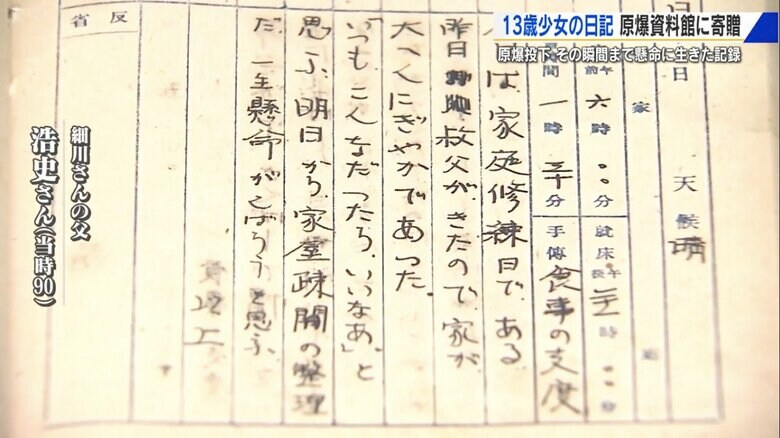 13歳少女の日記 原爆資料館に寄贈
原爆投下 その瞬間まで懸命に生きた記録
日
天候 晴
家
庭
六時〇〇分
就床 午後 時〇〇分
時間 一時三十分
手傳 食事の支度
は、家庭修練日である
昨日 叔父が、きたので、家が
大へんにぎやかであった。
「いつもこんなだったら、いいなあ」と
思ふ、明日から、家屋疎開の整理
だ。一生懸命がんばろうと思ふ。
反省
細川さんの父
浩史さん(当時90)